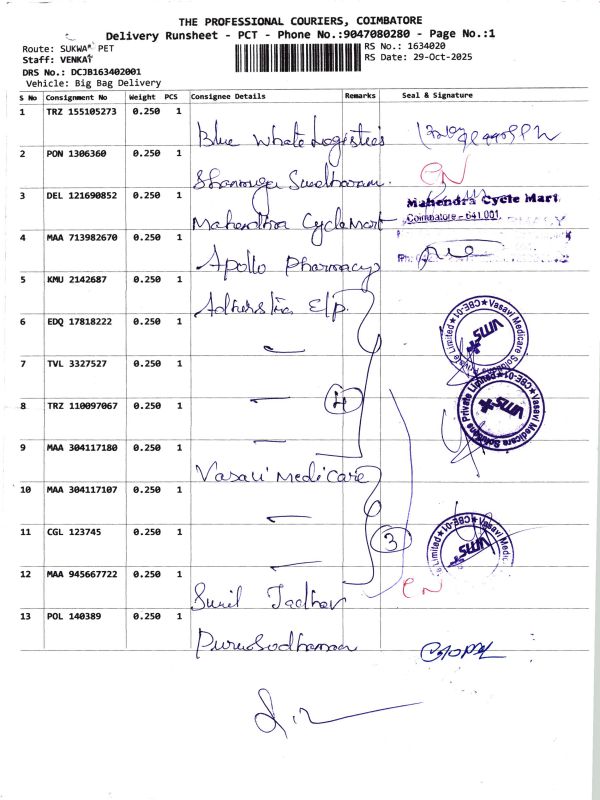 THE PROFESSIONAL COURIERS, COIMBATORE
Delivery Runsheet - PCT - Phone No.:9047080280 - Page No.:1
Route: SUKWAR PET
RS No.: 1634020
Staff: VENKAT
RS Date: 29-Oct-2025
DRS No.: DCJB163402001
Vehicle: Big Bag Delivery
S No Consignment No Weight PCS Consignee Details Remarks Seal & Signature
1 TRZ 155105273 0.250 1 Blue Whale Logistics
2 PON 1306360 0.250 1 Shanmuga Sundharam CN
3 DEL 121690852 0.250 1 Mahendra Cycle Mart Mahendra Cycle Mart
Coimbatore - 641 001.
4 MAA 713982670 0.250 1 Apollo Pharmacy
5 KMU 2142687 0.250 1
6 EDQ 17818222 0.250 1 Vasavi Medicare Solutions Private Limited ★ CBE-01 ★ VMS
7 TVL 3327527 0.250 1
8 TRZ 110097067 0.250 1 4 Vasavi Medicare Solutions Private Limited ★ CBE-01 ★ VMS
9 MAA 304117180 0.250 1 Vasavi Medicare
10 MAA 304117107 0.250 1
11 CGL 123745 0.250 1 3 Vasavi Medic Limited ★ CBE-01 ★ VMS
12 MAA 945667722 0.250 1 Sunil Jadhav CN
13 POL 140389 0.250 1 Purusodhaman